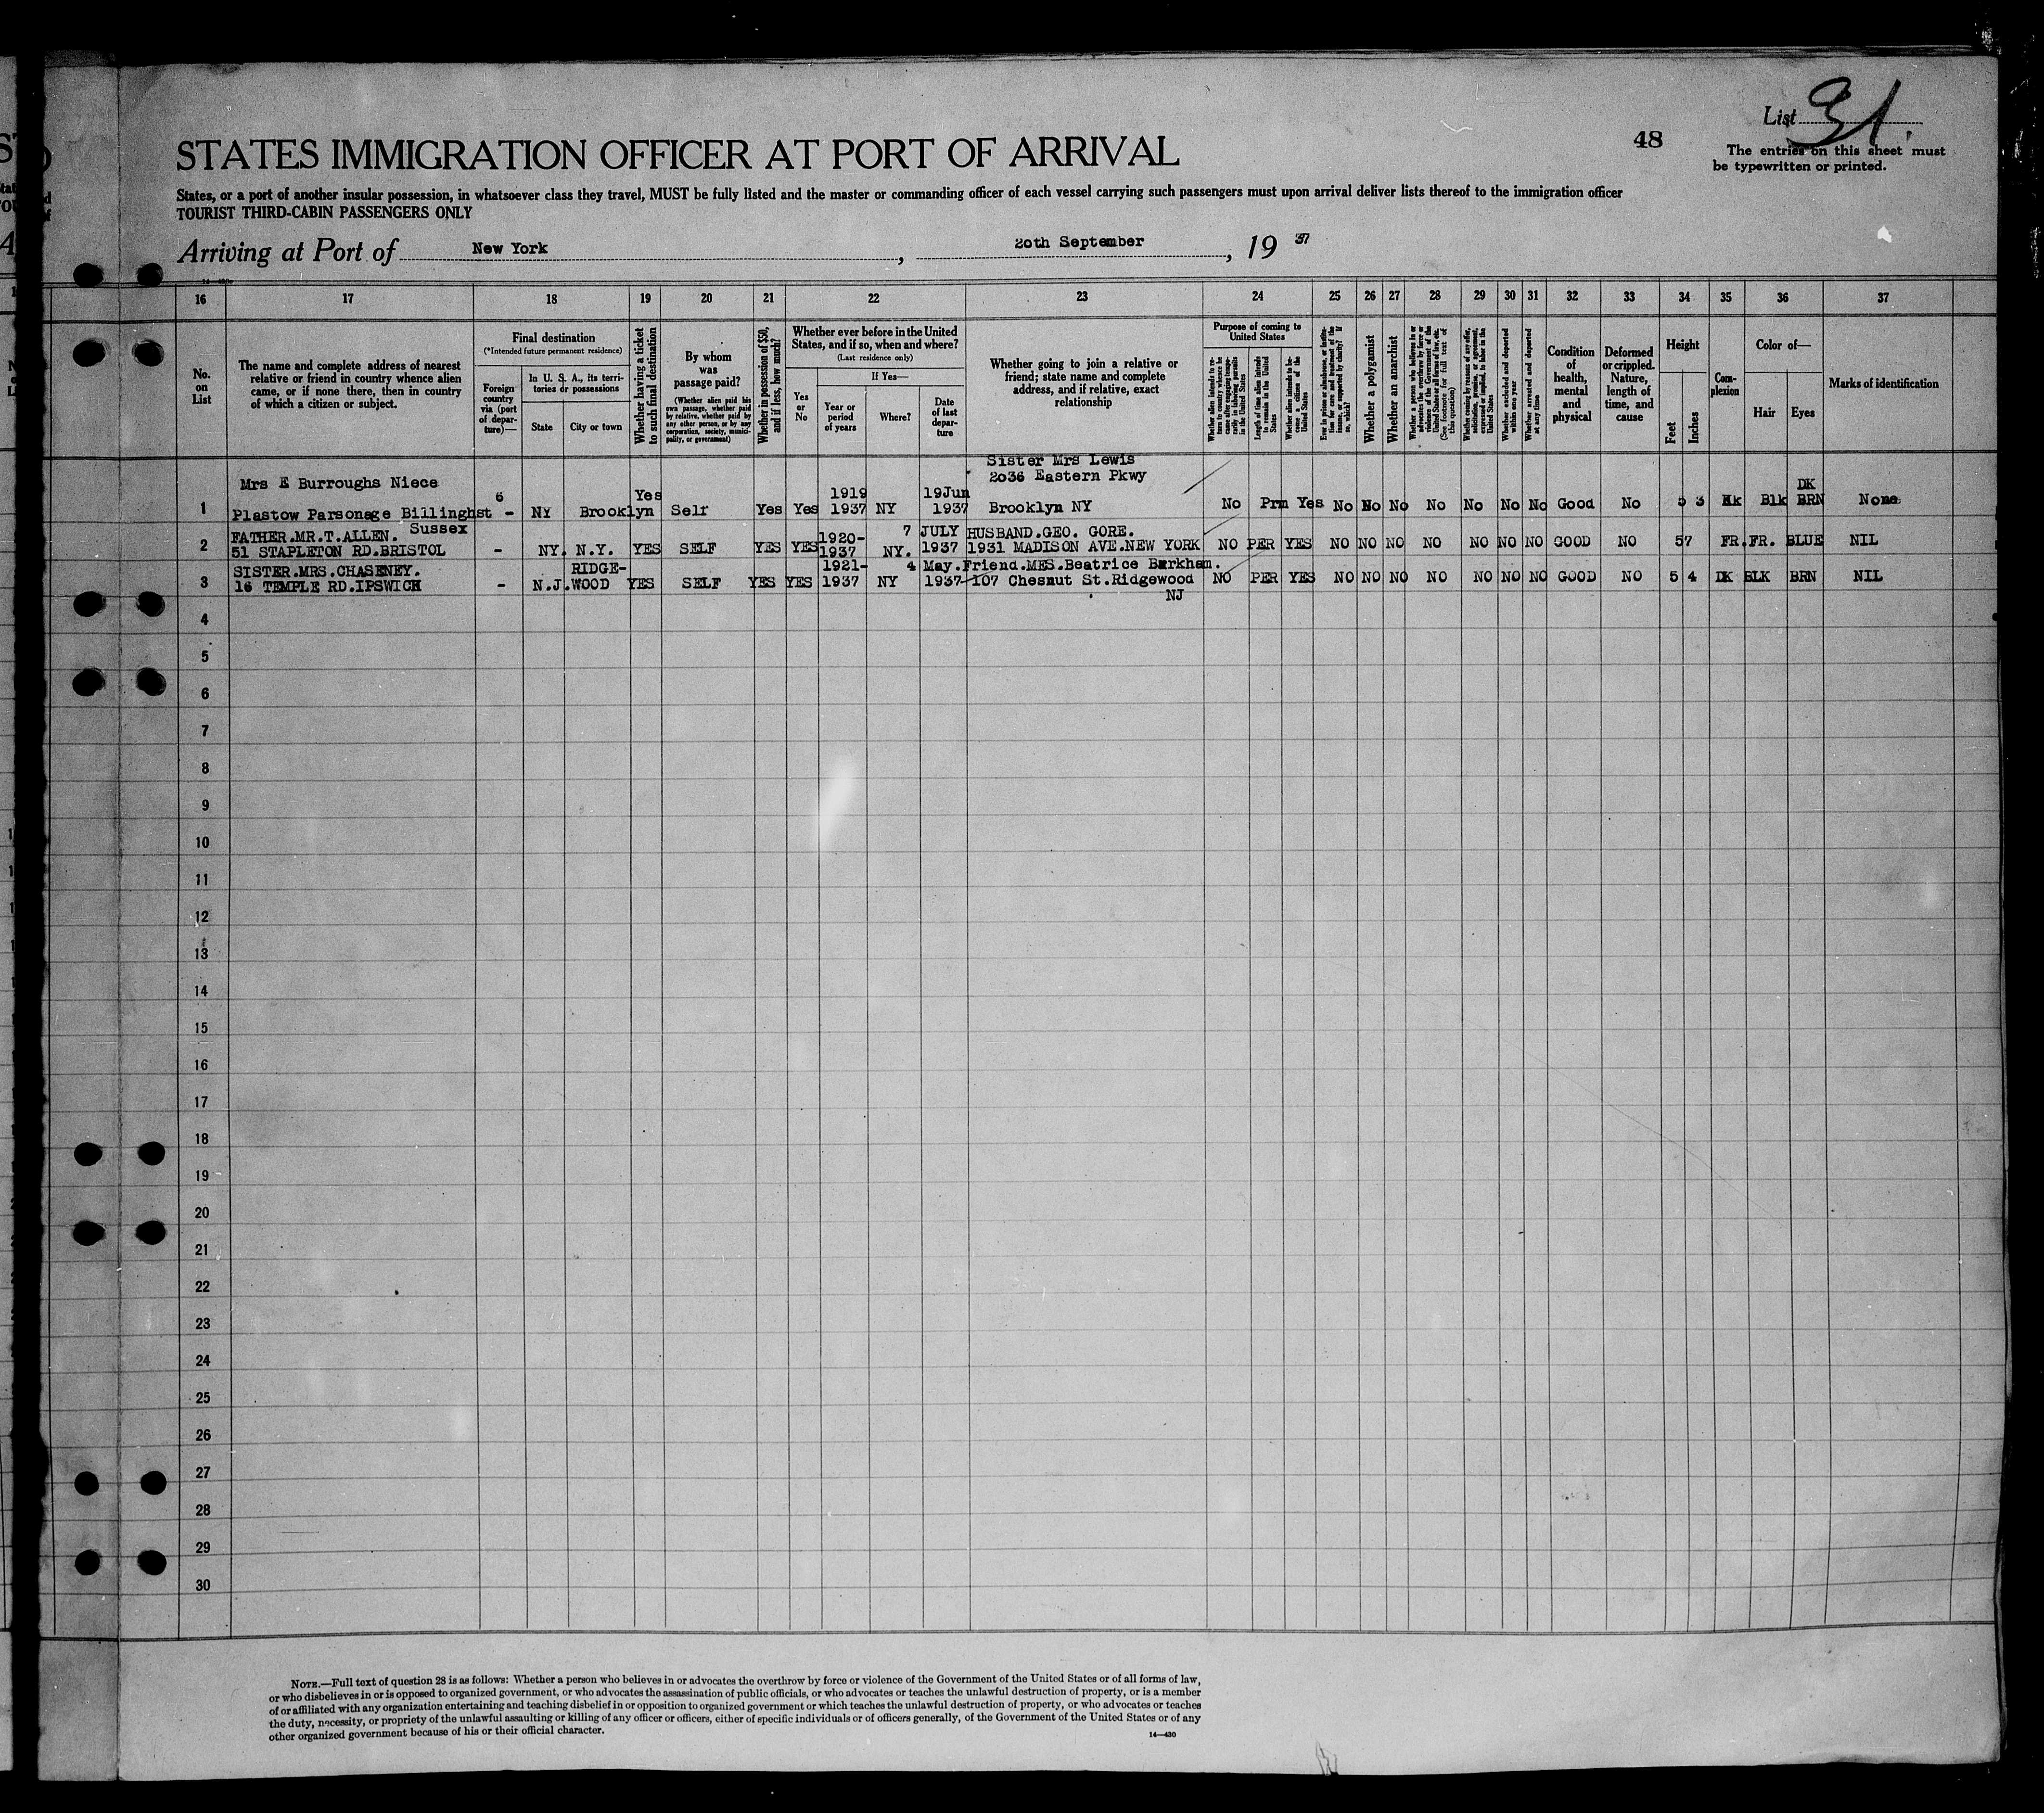 List 31.
48
The entries on this sheet must
be typewritten or printed.
STATES IMMIGRATION OFFICER AT PORT OF ARRIVAL
States, or a port of another insular possession, in whatsoever class they travel, MUST be fully listed and the master or commanding officer of each vessel carrying such passengers must upon arrival deliver lists thereof to the immigration officer
TOURIST THIRD-CABIN PASSENGERS ONLY
Arriving at Port of New York, 20th September, 19 37
16 17 18 19 20 21 22 23 24 25 26 27 28 29 30 31 32 33 34 35 36 37
No.
on
List
The name and complete address of nearest
relative or friend in country whence alien
came, or if none there, then in country
of which a citizen or subject.
Final destination
(*Intended future permanent residence)
Foreign
country
via (port
of depar-
ture)—
In U. S. A., its terri-
tories or possessions
State
City or town
Whether having a ticket
to such final destination
By whom
was
passage paid?
(Whether alien paid his
own passage, whether paid
by relative, whether paid by
any other person, or by any
corporation, society, munici-
pality, or government)
Whether in possession of $50,
and if less, how much?
Whether ever before in the United
States, and if so, when and where?
(Last residence only)
Yes
or
No
If Yes—
Year or
period
of years
Where?
Date
of last
depar-
ture
Whether going to join a relative or
friend; state name and complete
address, and if relative, exact
relationship
Purpose of coming to
United States
Whether alien intends to re-
turn to country whence he
came after engaging tempo-
rarily in laboring pursuits
in the United States
Length of time alien intends
to remain in the United
States
Whether alien intends to be-
come a citizen of the
United States
Ever in prison or almshouse, or institu-
tion for care and treatment of the
insane, or supported by charity? If
so, which?
Whether a polygamist
Whether an anarchist
Whether a person who believes in or
advocates the overthrow by force or
violence of the Government of the
United States or all forms of law, etc.
(See footnote for full text of
this question)
Whether coming by reasons of any offer,
solicitation, promise, or agreement,
expressed or implied, to labor in the
United States
Whether excluded and deported
within one year
Whether arrested and deported
at any time
Condition
of
health,
mental
and
physical
Deformed
or crippled.
Nature,
length of
time, and
cause
Height
Feet
Inches
Com-
plexion
Color of—
Hair
Eyes
Marks of identification
Sister Mrs Lewis
Mrs E Burroughs Niece 6 Yes 1919 19Jun 2036 Eastern Pkwy DK
1 Plastow Parsonage Billinghst - NY Brooklyn Self Yes Yes 1937 NY 1937 Brooklyn NY No Prm Yes No No No No No No No Good No 5 3 Blk BRN None
Sussex
FATHER.MR.T.ALLEN. 1920- 7 JULY HUSBAND.GEO. GORE.
2 51 STAPLETON RD.BRISTOL - NY. N.Y. YES SELF YES YES 1937 NY. 1937 1931 MADISON AVE.NEW YORK NO PER YES NO NO NO NO NO NO NO GOOD NO 57 FR. FR. BLUE NIL
SISTER.MRS.CHASENEY. RIDGE- 1921- 4 May. Friend.MRS.Beatrice Barkham.
3 16 TEMPLE RD.IPSWICH - N.J. WOOD YES SELF YES YES 1937 NY 1937 107 Chesnut St.Ridgewood NO PER YES NO NO NO NO NO NO NO GOOD NO 5 4 DK BLK BRN NIL
NJ
4
5
6
7
8
9
10
11
12
13
14
15
16
17
18
19
20
21
22
23
24
25
26
27
28
29
30
NOTE.—Full text of question 28 is as follows: Whether a person who believes in or advocates the overthrow by force or violence of the Government of the United States or of all forms of law,
or who disbelieves in or is opposed to organized government, or who advocates the assassination of public officials, or who advocates or teaches the unlawful destruction of property, or is a member
of or affiliated with any organization entertaining and teaching disbelief in or opposition to organized government or which teaches the unlawful destruction of property, or who advocates or teaches
the duty, necessity, or propriety of the unlawful assaulting or killing of any officer or officers, either of specific individuals or of officers generally, of the Government of the United States or of any
other organized government because of his or their official character.
14—430